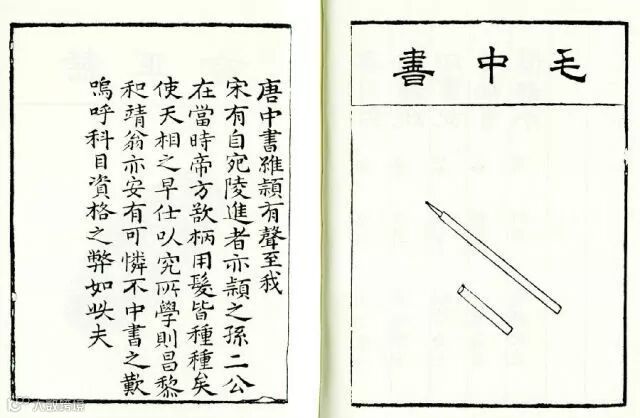 毛中書
唐中書雖頴有聲至我
宋有自宛陵進者亦頴之孫二公
在當時帝方欲柄用髮皆種種矣
使天相之早仕以究所學則昌黎
和靖翁亦安有可憐不中書之歎
嗚呼科目資格之弊如此夫
大数跨境